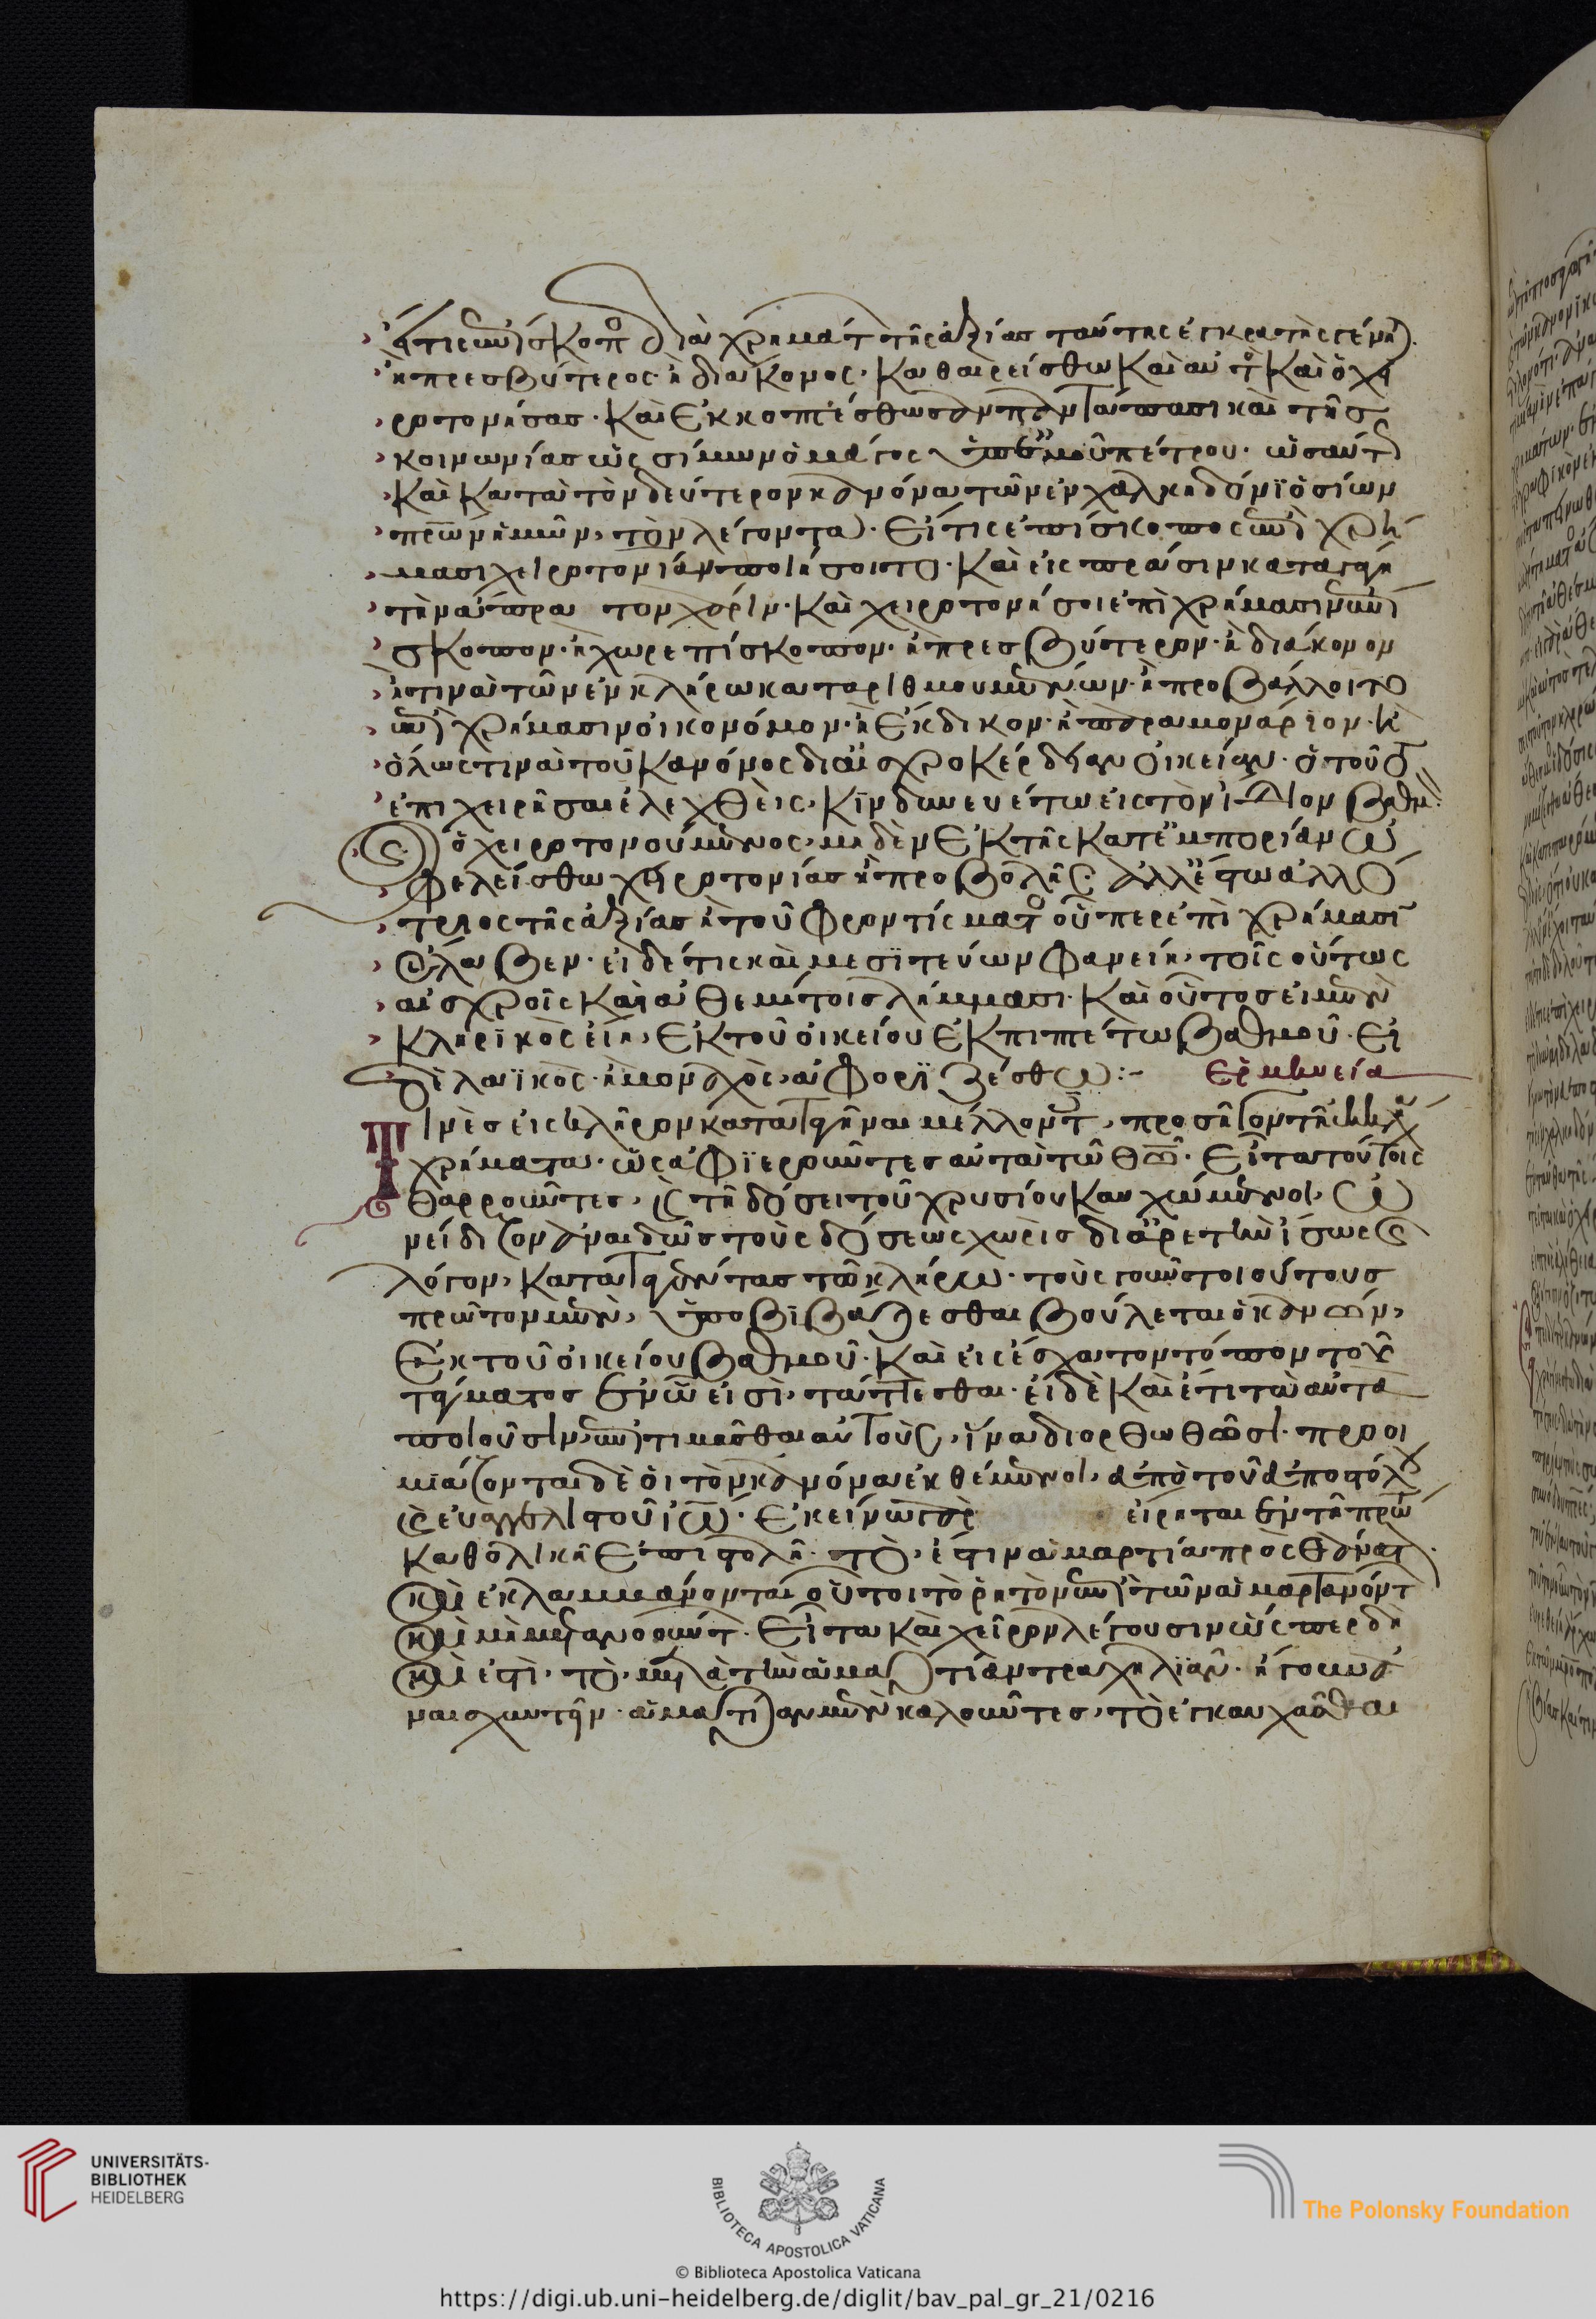 εἴ τις ἐπίσκοπος διὰ χρημάτων τῆς ἀξίας ταύτης ἐγκρατὴς γένηται
ἢ πρεσβύτερος ἢ διάκονος, καθαιρείσθω καὶ αὐτὸς καὶ ὁ χει
ροτονήσας· καὶ ἐκκοπτέσθω παντάπασι καὶ τῆς
κοινωνίας ὡς σίμων ὁ μάγος ὑπ' ἐμοῦ πέτρου· ὡσαύτως
καὶ κατὰ τὸν δεύτερον κανόνα τῶν ἐν χαλκηδόνι ὁσίων
πρων ἡμῶν, τὸν λέγοντα· Εἴ τις ἐπίσκοπος ἐπὶ χρή
μασι χειροτονίαν ποιήσοιτο· καὶ εἰς πρᾶσιν καταγάγῃ
τὴν ἄπρατον χάριν· καὶ χειροτονήσοι ἐπὶ χρήμασιν ἐπί
σκοπον· ἢ χωρεπίσκοπον· ἢ πρεσβύτερον· ἢ διάκονον
ἤ τινα τῶν ἐν κλήρω καταριθμουμένων· ἢ προβάλλοιτο
ἐπὶ χρήμασιν οἰκονόμον· ἢ ἔκδικον· ἢ παραμονάριον· ἢ
ὅλως τινὰ τοῦ κανόνος δι' αἰσχροκέρδειαν οἰκείαν· ὁ τοῦτο
ἐπιχειρήσας ἐλεχθεὶς, κινδυνευέτω εἰς τὸν ἴδιον βαθμόν
ὁ χειροτονούμενος, μηδὲν ἐκ τῆς κατ' ἐμπορίαν ὠ
φελείσθω χειροτονίας ἢ προβολῆς· ἀλλ' ἔστω ἀλλό
τριος τῆς ἀξίας ἢ τοῦ φροντίσματος οὗπερ ἐπὶ χρήμασι
ἔλαβεν· εἰ δέ τις καὶ μεσιτεύων φανείη, τοῖς οὕτως
αἰσχροῖς καὶ ἀθεμίτοις λήμμασι· καὶ οὗτος εἰ μὲν
κληρικὸς εἴη, ἐκ τοῦ οἰκείου ἐκπιπτέτω βαθμοῦ· εἰ
δὲ λαϊκὸς· ἢ μοναχὸς, ἀφοριζέσθω:- Ερμηνεία
Τινὲς εἰς κλῆρον καταταγῆναι μέλλοντες, προσῆγον τῆ ἐκκλησία
χρήματα· ὡς ἀφιεροῦντες αὐτὰ τῶ θεῶ· Εἶτα τούτοις
θαρροῦντες, καὶ τῆ δόσει τοῦ χρυσίου καυχώμενοι, ὠ
νείδιζον ἀναιδῶς τοὺς δόσεως χωρὶς δι' ἀρετὴν ἴσως καὶ
λόγον, καταταγέντας τῶ κλήρω· τοὺς γοῦν τοιούτους
πρῶτον μὲν, ὑποβιβάζεσθαι βούλεται ὁ κανὼν,
ἐκ τοῦ οἰκείου βαθμοῦ· καὶ εἰς ἔσχατον τόπον τοῦ
τάγματος ἐν ὧ εἰσὶ, τάττεσθαι· εἰ δὲ καὶ ἔτι τὰ αὐτὰ
ποιοῦσιν, ἐπιτιμᾶσθαι αὐτοὺς, ἵνα διορθωθῶσι· προοι
μιάζονται δὲ οἱ τὸν κανόνα ἐκθέμενοι, ἀπὸ τοῦ ἀποστόλου
καὶ εὐαγγελιστοῦ ἰω· Ἐκείνω γὰρ εἴρηται ἐν τῆ πρώτη
καθολικῆ ἐπιστολῆ· τὸ, ἔστιν ἁμαρτία πρὸς θάνατον
καὶ ἐκλαμβάνονται οὗτοι τὸ ῥητὸν ἐπὶ τῶν ἁμαρτανόντων
καὶ μὴ μετανοούντων· Εἶτα καὶ χεῖρον λέγουσιν ὥσπερ δὴ
καὶ ἐστὶ· τὸ, μετὰ τὴν ἁμαρτίαν τραχηλιᾶν· ἤγουν ἀ
ναισχυντεῖν· ἁμαρτίαν μὲν καλοῦντες, τὸ ἐγκαυχᾶσθαι
UNIVERSITÄTS-
BIBLIOTHEK
HEIDELBERG
BIBLIOTECA APOSTOLICA VATICANA
The Polonsky Foundation
© Biblioteca Apostolica Vaticana
https://digi.ub.uni-heidelberg.de/diglit/bav_pal_gr_21/0216